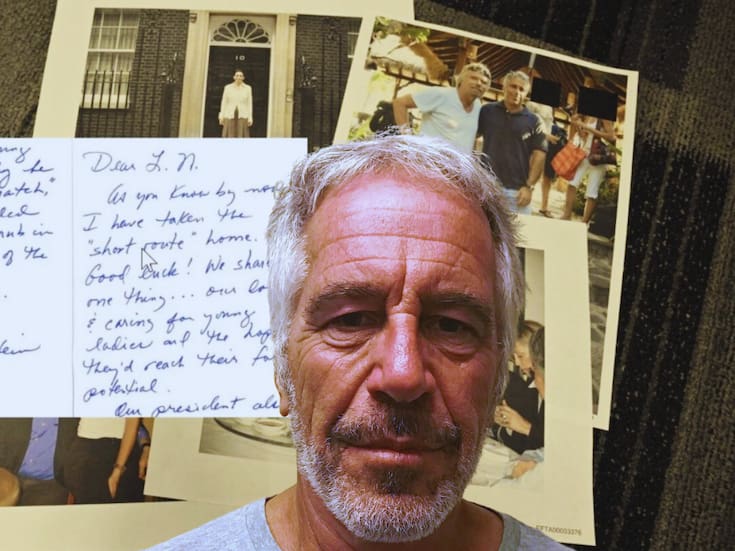 10
be
atch,"
in
of the
Dear L. N.
As you know by now
I have taken the
"short route" home.
Good luck! We shar
one thing... our lo
& caring for young
ladies and the hop
they'd reach their
potential.
Our president als
EFTA00003376